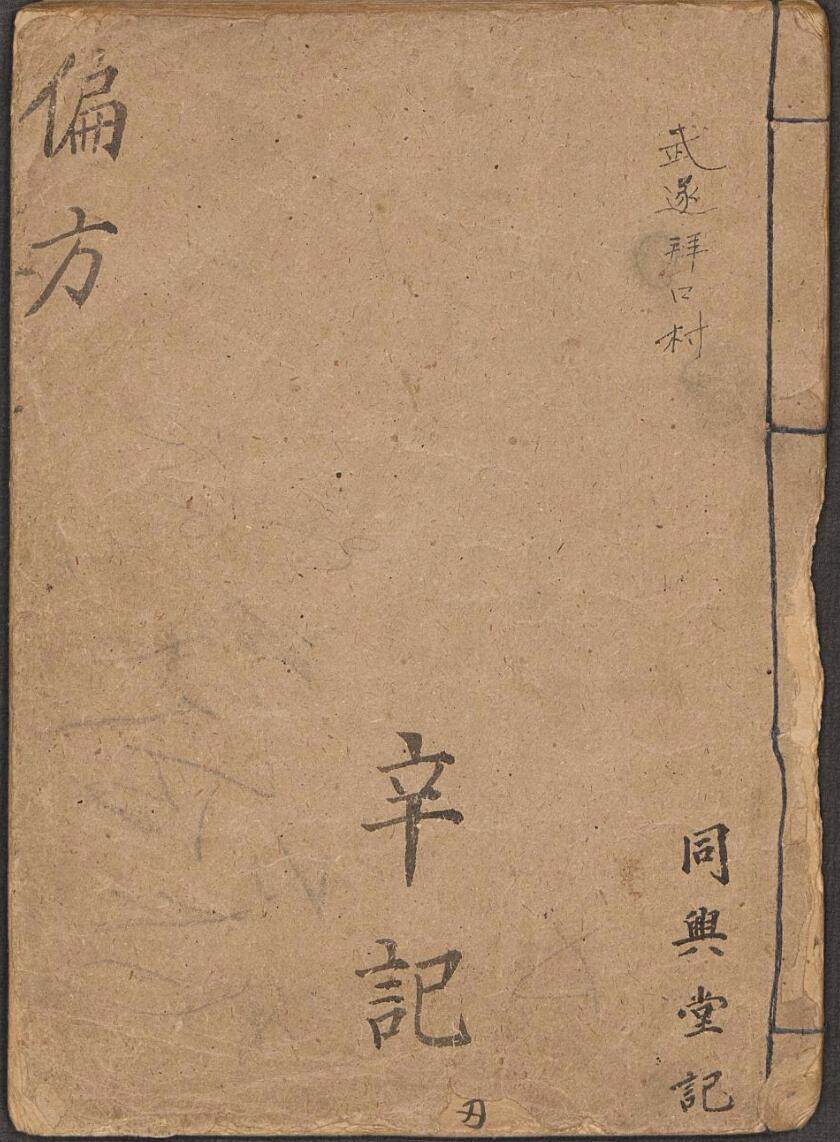 武遂拜口村
同興堂記
辛記
偏方